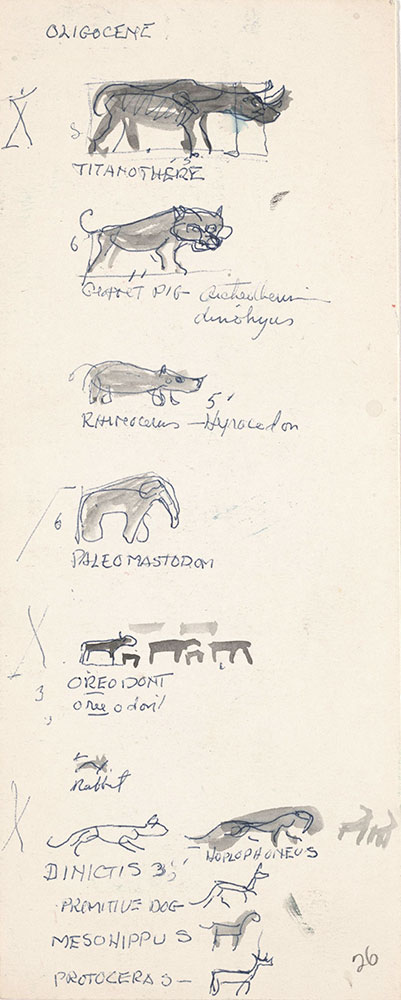 OLIGOCENE
X
8
15'
TITANOTHERE
6
11
GIANT PIG - Archeotherium
dinohyus
6
5'
Rhinoceros - Hyracodon
6
PALEOMASTODON
X
3
OREODONT
oreodont
Rabbit
X
DINICTIS 3½'
HOPLOPHONEUS
PRIMITIVE DOG
MESOHIPPUS
PROTOCERAS -
26